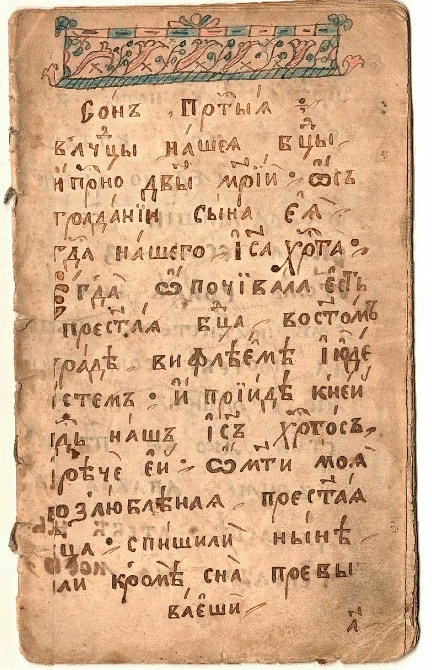 Сонъ Пр҃тыѧ
влчцы нашеѧ бц҃ы
и пр҃но дв҃ы мр҃іи · ѡсъ
граданіи сына еѧ
гд҃а нашего іс҃а хр҃та ·
гда ѡпочивала есть
прест҃аѧ бц҃а востомъ
градѣ вифлѣемѣ іюде
істемъ · и пріидѣ кнеи
дь нашъ іс҃ъ хр҃тосъ
рѣче еи · ѿ мт҃и моѧ
озлюблѣнаѧ прест҃аѧ
ца · спишили нынѣ
ли кромѣ сна превы
ваеши
а҃